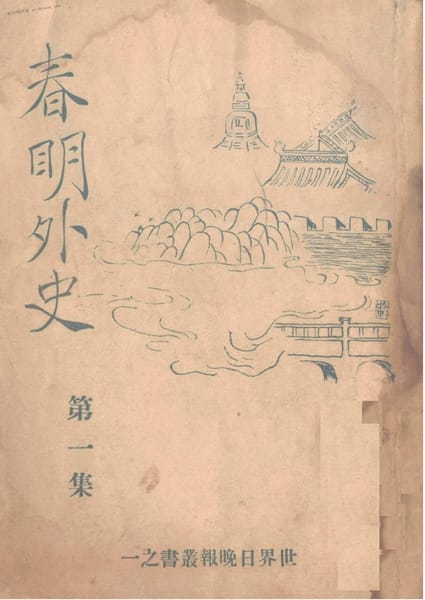 春明外史
第一集
世界日晚報叢書之一